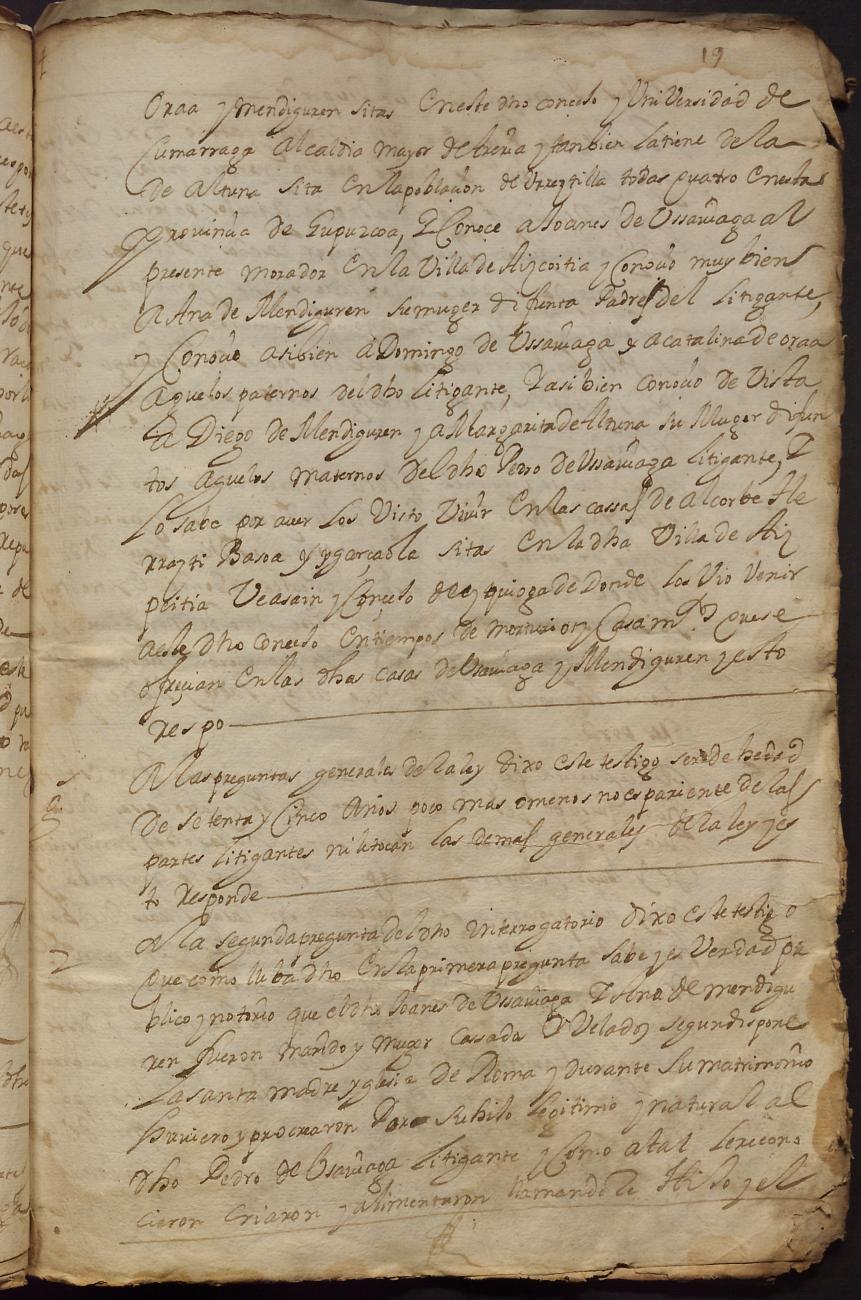 19
Oraa y mendiguren sitas En este dho concejo y Universidad de
Cumarraga Alcaldia mayor de Areria y tanbien la tiene de la
De Altuna sita En la poblacion de Urrestilla todas quatro En esta
Provincia de Guipuzcoa, Y Conoce a Joanes de Ussarraga al
presente morador En la Villa de Aizcoitia y Conocio muy bien
A Ana de Mendiguren su muger difunta Padres del Litigante,
y Conocio asi bien a Domingo de Ussarraga y a catalina de oraa
Aguelos paternos del dho Litigante, Y asi bien conocio de Vista
A Diego de Mendiguren y a Margarita de Altuna su Muger difun
tos Aguelos maternos del dho Pedro de Ussarraga Litigante, Y
Lo sabe por aver Los Visto Vivir En las cassas de alcorbe He
rrazti Basoa y ygarçaola sitas En la dha Villa de Aiz
peitia Veasain y Conçejo de ezquioga de Donde Los Vio Venir
a este dho concejo En tiempos de mortuorios y Casamtos que se
ofreçian En las dhas casas de Ussarraga y Mendiguren y esto
respo
g.s
A las preguntas generales de la ley dixo Este testigo ser de hedad
De setenta y Cinco Años poco mas o menos no es pariente de las
partes Litigantes ni le tocan las demas generales de la ley y es
to Responde
2
A la segunda pregunta del dho Interrogatorio dixo este testigo
Que como lleba dho En la primera pregunta sabe y es Verdad pu
blico y notorio que el dho Joanes de Ussarraga Y Ana de mendigu
ren fueron marido y muger Cassados Y Velados segun dispone
La santa madre yglesia de Roma y durante su matrimonio
huvieron y procrearon Por su hijo Legitimo y natural al
dho Pedro de Ussarraga Litigante y Como a tal Le recono
cieron Criaron y Alimentaron llamandole Hijo y el